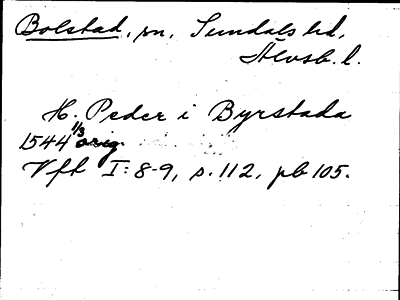 Bolstad, sn, Sundals hd,
Älvsb. l.
H. Peder i Byrstada
1544 1/3 orig.
Vft I: 8-9, s. 112, pb 105.